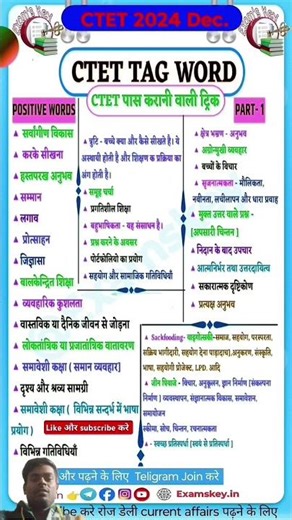 CTET 2024 Dec.
CTET TAG WORD
CTET पास करानी वाली ट्रिक
POSITIVE WORDS
PART- 1
सर्वांगीण विकास
करके सीखना
हस्तपरख अनुभव
सम्मान
लगाव
प्रोत्साहन
जिज्ञासा
बालकेन्द्रित शिक्षा
व्यवहारिक कुशलता
वास्तविक या दैनिक जीवन से जोड़ना
लोकतांत्रिक या प्रजातांत्रिक वातावरण
समावेशी कक्षा ( समान व्यवहार)
दृश्य और श्रव्य सामग्री
समावेशी कक्षा ( विभिन्न सन्दर्भ में भाषा
प्रयोग )
Like और subscribe करे
विभिन्न गतिविधियाँ
त्रुटि - बच्चे क्या और कैसे सीखते है। ये
अस्थायी होती है और शिक्षण क प्रक्रिया का
अंग होती है।
समूह चर्चा
प्रगतिशील शिक्षा
बहुभाषिकता - यह संसाधन है।
प्रश्न करने के अवसर
पोर्टफोलियो का प्रयोग
सहयोग और सामाजिक गतिविधियाँ
क्षेत्र भ्रमण - अनुभव
अग्रोन्मुखी व्यवहार
बच्चों के विचार
सृजनात्मकता - मौलिकता,
नवीनता, लचीलापन और धारा प्रवाह
मुक्त उत्तर वाले प्रश्न -
[अपसारी चिन्तन ]
निदान के बाद उपचार
आत्मनिर्भर तथा उत्तरदायित्व
सकारात्मक दृष्टिकोण
प्रत्यक्ष अनुभव
Sackfooding- वाइगोत्सकी-समाज, सहयोग, परस्परता,
सक्रिय भागीदारी, सहयोग देना पाड़ादेना),अनुकरण, संस्कृति,
भाषा, सहयोगी प्रोजेक्ट, LPD. आदि
जीन पियाजे - विचार, अनुकूलन, ज्ञान निर्माण (संकल्पना
निर्माण ) व्यवस्थापन, संज्ञानात्मक विकास, समावेशन,
समायोजन
स्कीमा, सोच, चिन्तन, रचनात्मकता
- स्वच्छ प्रतिस्पर्धा [स्वयं से प्रतिस्पर्धा ]
और पढ़ने के लिए Teligram Join करे
Examskey.in
be करे रोज डेली current affairs पढ़ने के लिए